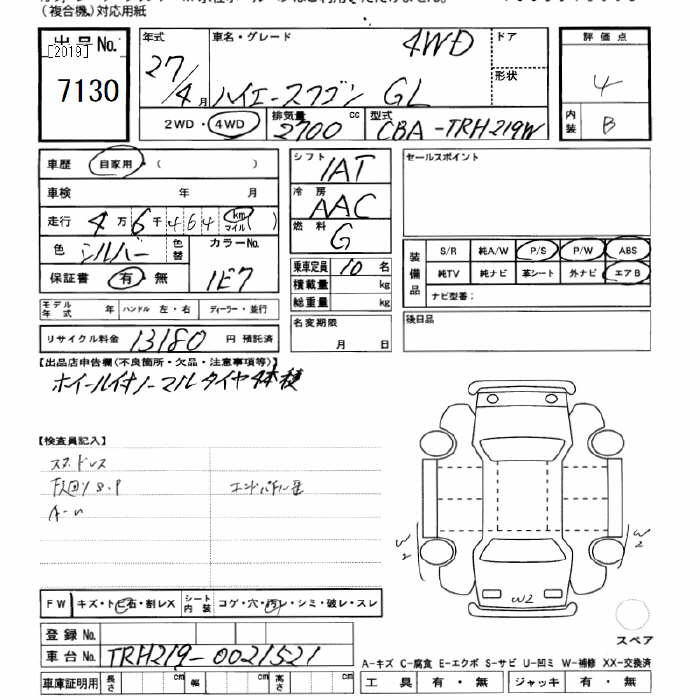 (複合機)対応用紙
出品No.
[2019]
7130
年式 27/4月
車名・グレード ハイエースワゴン GL 4WD
ドア
形状
2WD・4WD
排気量 2700 cc
型式 CBA-TRH219W
評価点
4
内装 B
車歴 自家用・( )
車検 年 月
走行 4万6千464 km マイル ( )
色 シルバー 色替
カラーNo. 1E7
保証書 有・無
シフト IAT
冷房 AAC
燃料 G
乗車定員 10名
積載量 kg
総重量 kg
名変期限
月 日
セールスポイント
装備品
S/R 純A/W P/S P/W ABS
純TV 純ナビ 革シート 外ナビ エアB
ナビ型番:
後日品
モデル年式 年 ハンドル 左・右 ディーラー・並行
リサイクル料金 13180 円 預託済
【出品店申告欄(不良箇所・欠品・注意事項等)】
ホイール付ノーマルタイヤ4本積
【検査員記入】
スタッドレス
下回りS.P エンドパネル歪
A-U
W2
W2
W2
FW キズ・トビ石・割レX
シート内装 コゲ・穴・汚レ・シミ・破レ・スレ
スペア
登録No.
車台No. TRH219-0021521
A-キズ C-腐食 E-エクボ S-サビ U-凹ミ W-補修 XX-交換済
車庫証明用 長さ cm 幅 cm 高さ cm
工具 有・無 ジャッキ 有・無